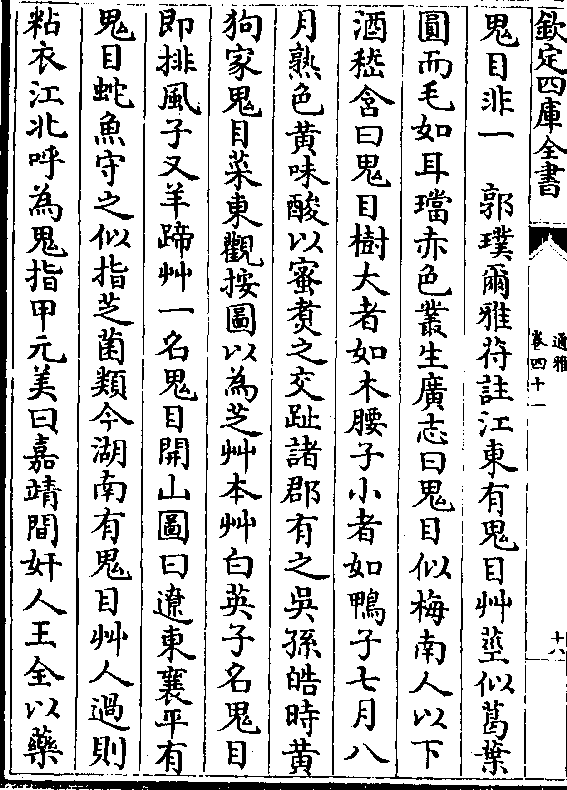 欽定四庫全書
通雅
卷四十一
十六
鬼目非一　郭璞爾雅苻註江東有鬼目艸莖似葛葉
圓而毛如耳璫赤色叢生廣志曰鬼目似梅南人以下
酒嵇含曰鬼目樹大者如木腰子小者如鴨子七月八
月熟色黃味酸以蜜煑之交趾諸郡有之吳孫皓時黃
狗家鬼目菜東觀按圖以為芝艸本艸白英子名鬼目
即排風子又羊蹄艸一名鬼目開山圖曰遼東襄平有
鬼目蛇魚守之似指芝菌類今湖南有鬼目艸人過則
粘衣江北呼為鬼指甲元美曰嘉靖間奸人王全以藥